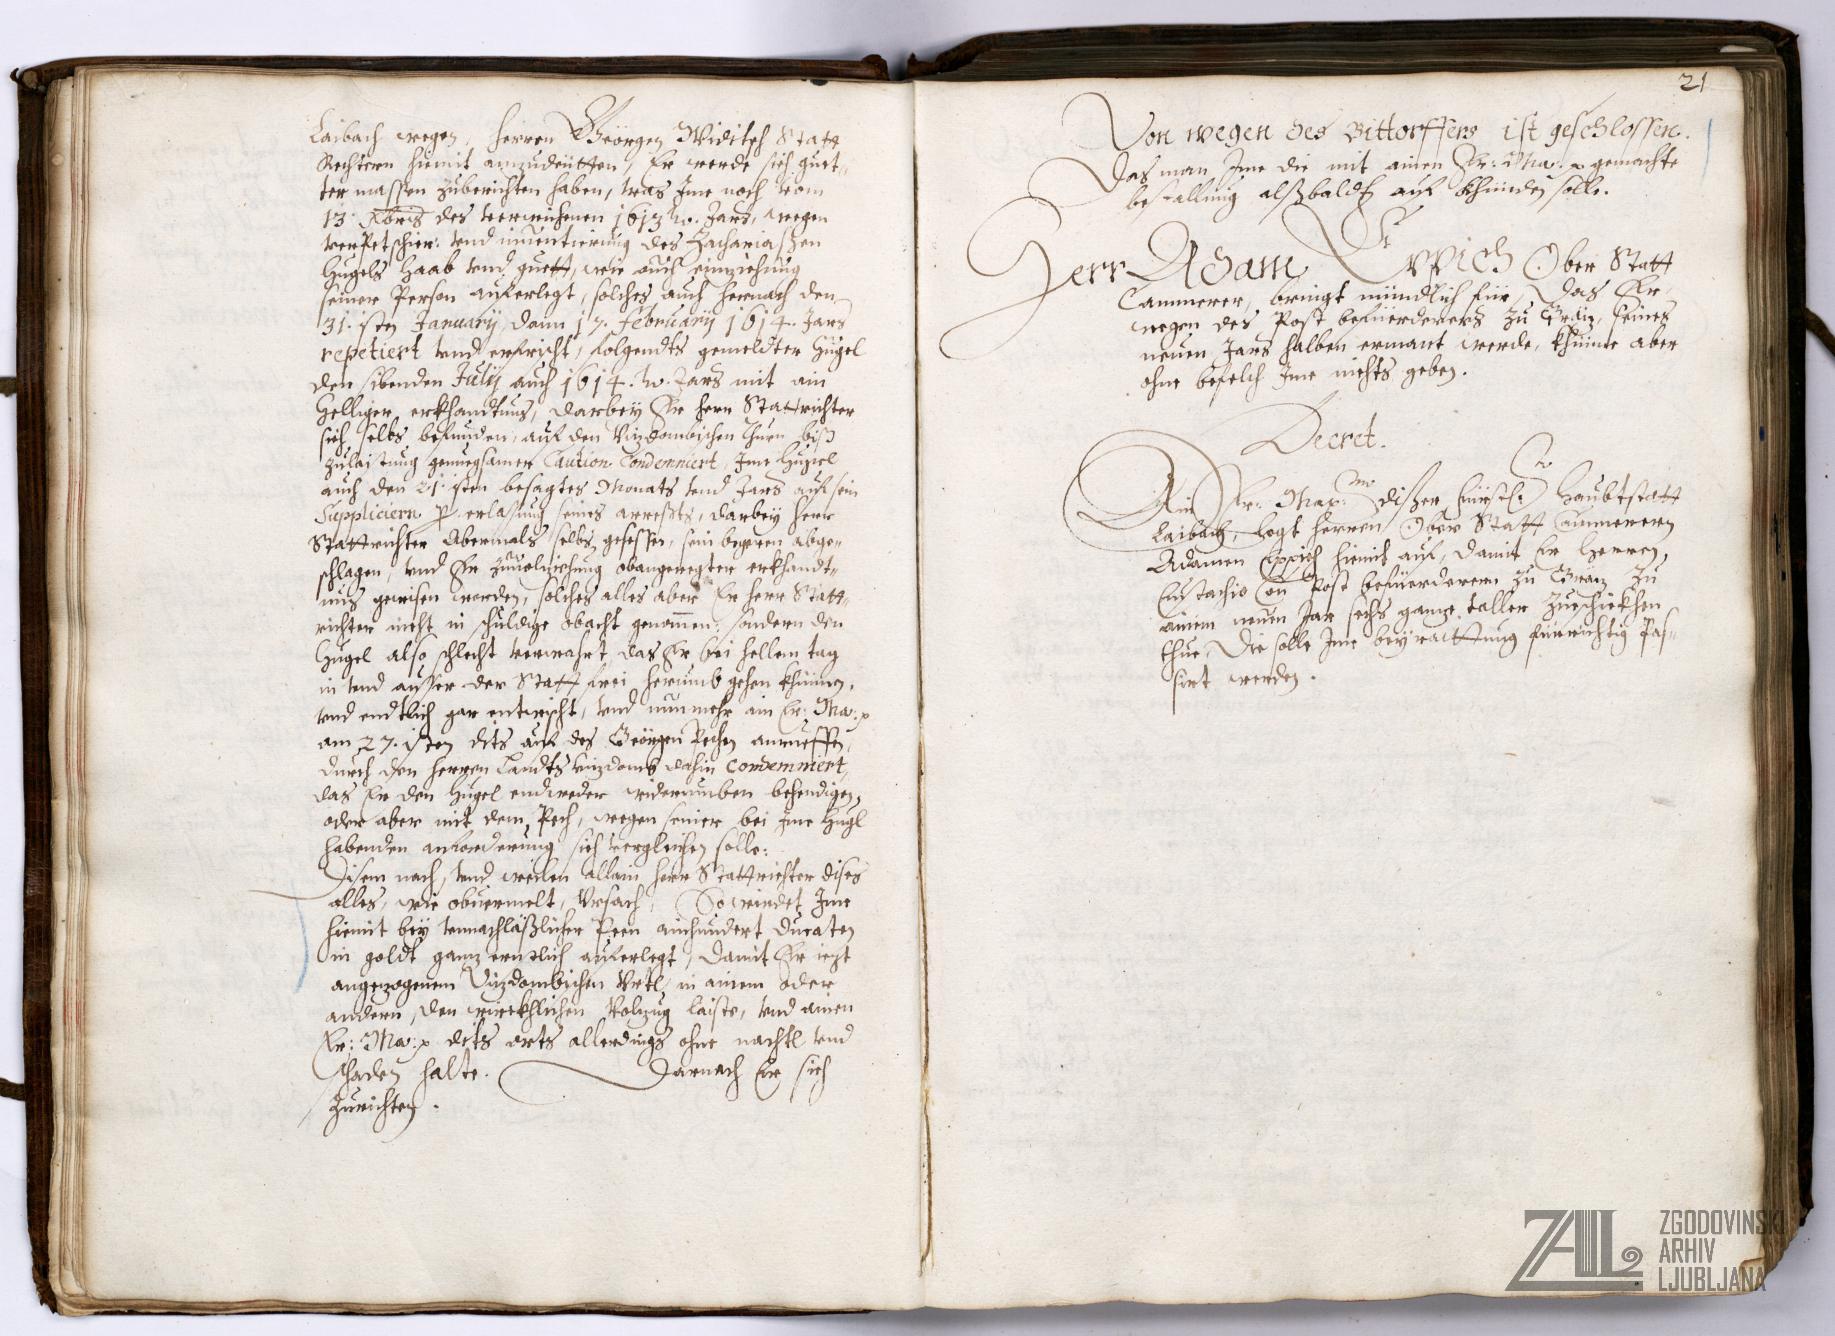 Laibach wegen, Herren Geörgen Widitsch Statt
Richtern hiemit anzudeütten, Er werde sich guet-
ter massen zuberichten haben, was Jme noch vom
13. Xbris des verwichenen 1613.ten Jars, wegen
verPetschier: vnd inuentierung des Zachariaßen
Hugels Haab vnd guett, wie auch einziehung
seiner Person auferlegt, solches auch hernach den
31.sten January, dann 17. February 1614. Jars
repetiert vnd erfrischt, folgendts gemeldter Hugel
den sibenden July auch 1614.ten Jars mit ain
helliger erkhandtnus, darbey Er herr Stattrichter
sich selbs befunden, auf den Vizdombischen Thurn biß
zulaistung genuegsamer Caution Condemniert, Jme Hugel
auch den 21.sten besagtes Monats vnd Jars auf sein
Supplicirn p. erlasung seines arrests, darbey herr
Stattrichter Abermals selbs gesessen, sein begeren abge-
schlagen, vnd Er zuuolziehung obangeregter erkhandt-
nus gewisen worden, solches alles aber Er herr Statt-
richter nicht in schuldige obacht genommen, sondern den
Hugel also schlecht verwahrt, das Er bei hellem tag
in vnd ausser der Statt frei herumb gehen khünnen,
vnd endtlich gar entwischt, vnd nunmehr ain Er: Ma: p
am 27.isten dits auf des Geörgen Pechen anrueffen,
durch den herren Landts Vizdomb dahin condemniert,
das Er den Hugel endtweder widerumben behendigen,
oder aber mit dem Pech, wegen seiner bei Jme Hugl
habenden anforderung sich vergleichen solle:
Disem nach, vnd weilen allain herr Stattrichter dises
alles, wie obuermelt, Vrsach, So wirdet Jme
hiemit bey vnnachläßlicher Peen ainhundert Ducaten
in goldt ganz ernstlich auferlegt, damit Er iezt
angezogenem Vizdombischen Vrtl, in ainem oder
andern, den würckhlichen Volzug laiste, vnd ainen
Er: Ma: p dits orts allerdings ohne nachtl vnd
schaden halte. Darnach Er sich
zurichten.
21
Von wegen des Bittorffers ist geschlossen.
Das man Jme die mit ainen Er: Ma: p gemachte
bestallung alßbaldt auf khünden solle.
Herr Adam Eppich Ober Statt
Cammerer, bringt mündtlich für, Das Er,
wegen des Post befuerderers zu Gräz, seines
neuen Jars halben ermant werde, khünne aber
ohne befelch Jme nichts geben.
Decret.
Ain Er: Mag: diser Fürstl: Haubtstatt
Laibach, legt herren Ober Statt Cammerern
Adamen Eppich hiemit auf, damit Er Herren
Eustachio Post befuerderern zu Gräz zu
ainem neuen Jar sechs ganze taller zueschickhen
thue, Die solle Jme bey raittung fürrichtig Pas-
sirt werden.
ZAL
ZGODOVINSKI
ARHIV
LJUBLJANA